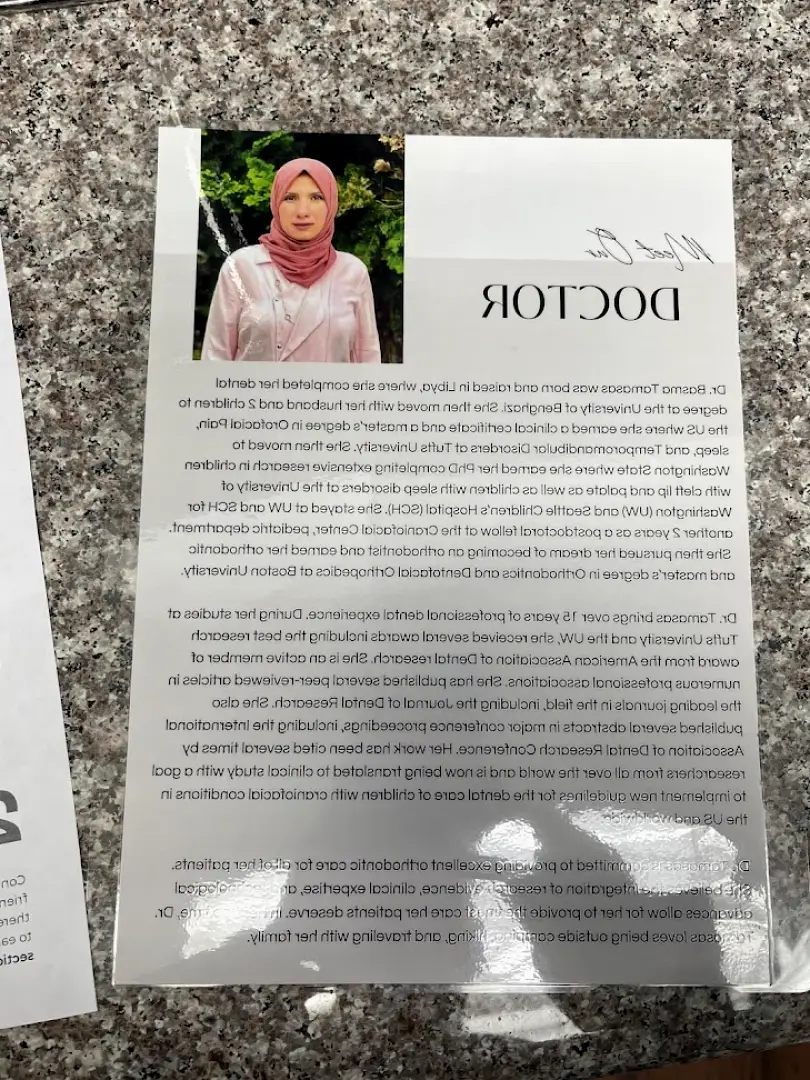 Meet Our
DOCTOR
Dr. Basma Tamasas was born and raised in Libya, where she completed her dental
degree at the University of Benghazi. She then moved with her husband and 2 children to
the US where she earned a clinical certificate and a master's degree in Orofacial Pain,
sleep, and Temporomandibular Disorders at Tufts University. She then moved to
Washington State where she earned her PhD completing extensive research in children
with cleft lip and palate as well as children with sleep disorders at the University of
Washington (UW) and Seattle Children's Hospital (SCH). She stayed at UW and SCH for
another 2 years as a postdoctoral fellow at the Craniofacial Center, pediatric department.
She then pursued her dream of becoming an orthodontist and earned her orthodontic
and master's degree in Orthodontics and Dentofacial Orthopedics at Boston University.
Dr. Tamasas brings over 15 years of professional dental experience. During her studies at
Tufts University and the UW, she received several awards including the best research
award from the American Association of Dental research. She is an active member of
numerous professional associations. She has published several peer-reviewed articles in
the leading journals in the field, including the Journal of Dental Research. She also
published several abstracts in major conference proceedings, including the International
Association of Dental Research Conference. Her work has been cited several times by
researchers from all over the world and is now being translated to clinical study with a goal
to implement new guidelines for the dental care of children with craniofacial conditions in
the US and worldwide.
Dr. Tamasas is committed to providing excellent orthodontic care for all of her patients.
She believes the integration of research evidence, clinical expertise, and technological
advances allow for her to provide the care her patients deserve. Dr.
Tamasas loves being outside camping, hiking, and traveling with her family.
2
Con
frien
there
to ea
sectio